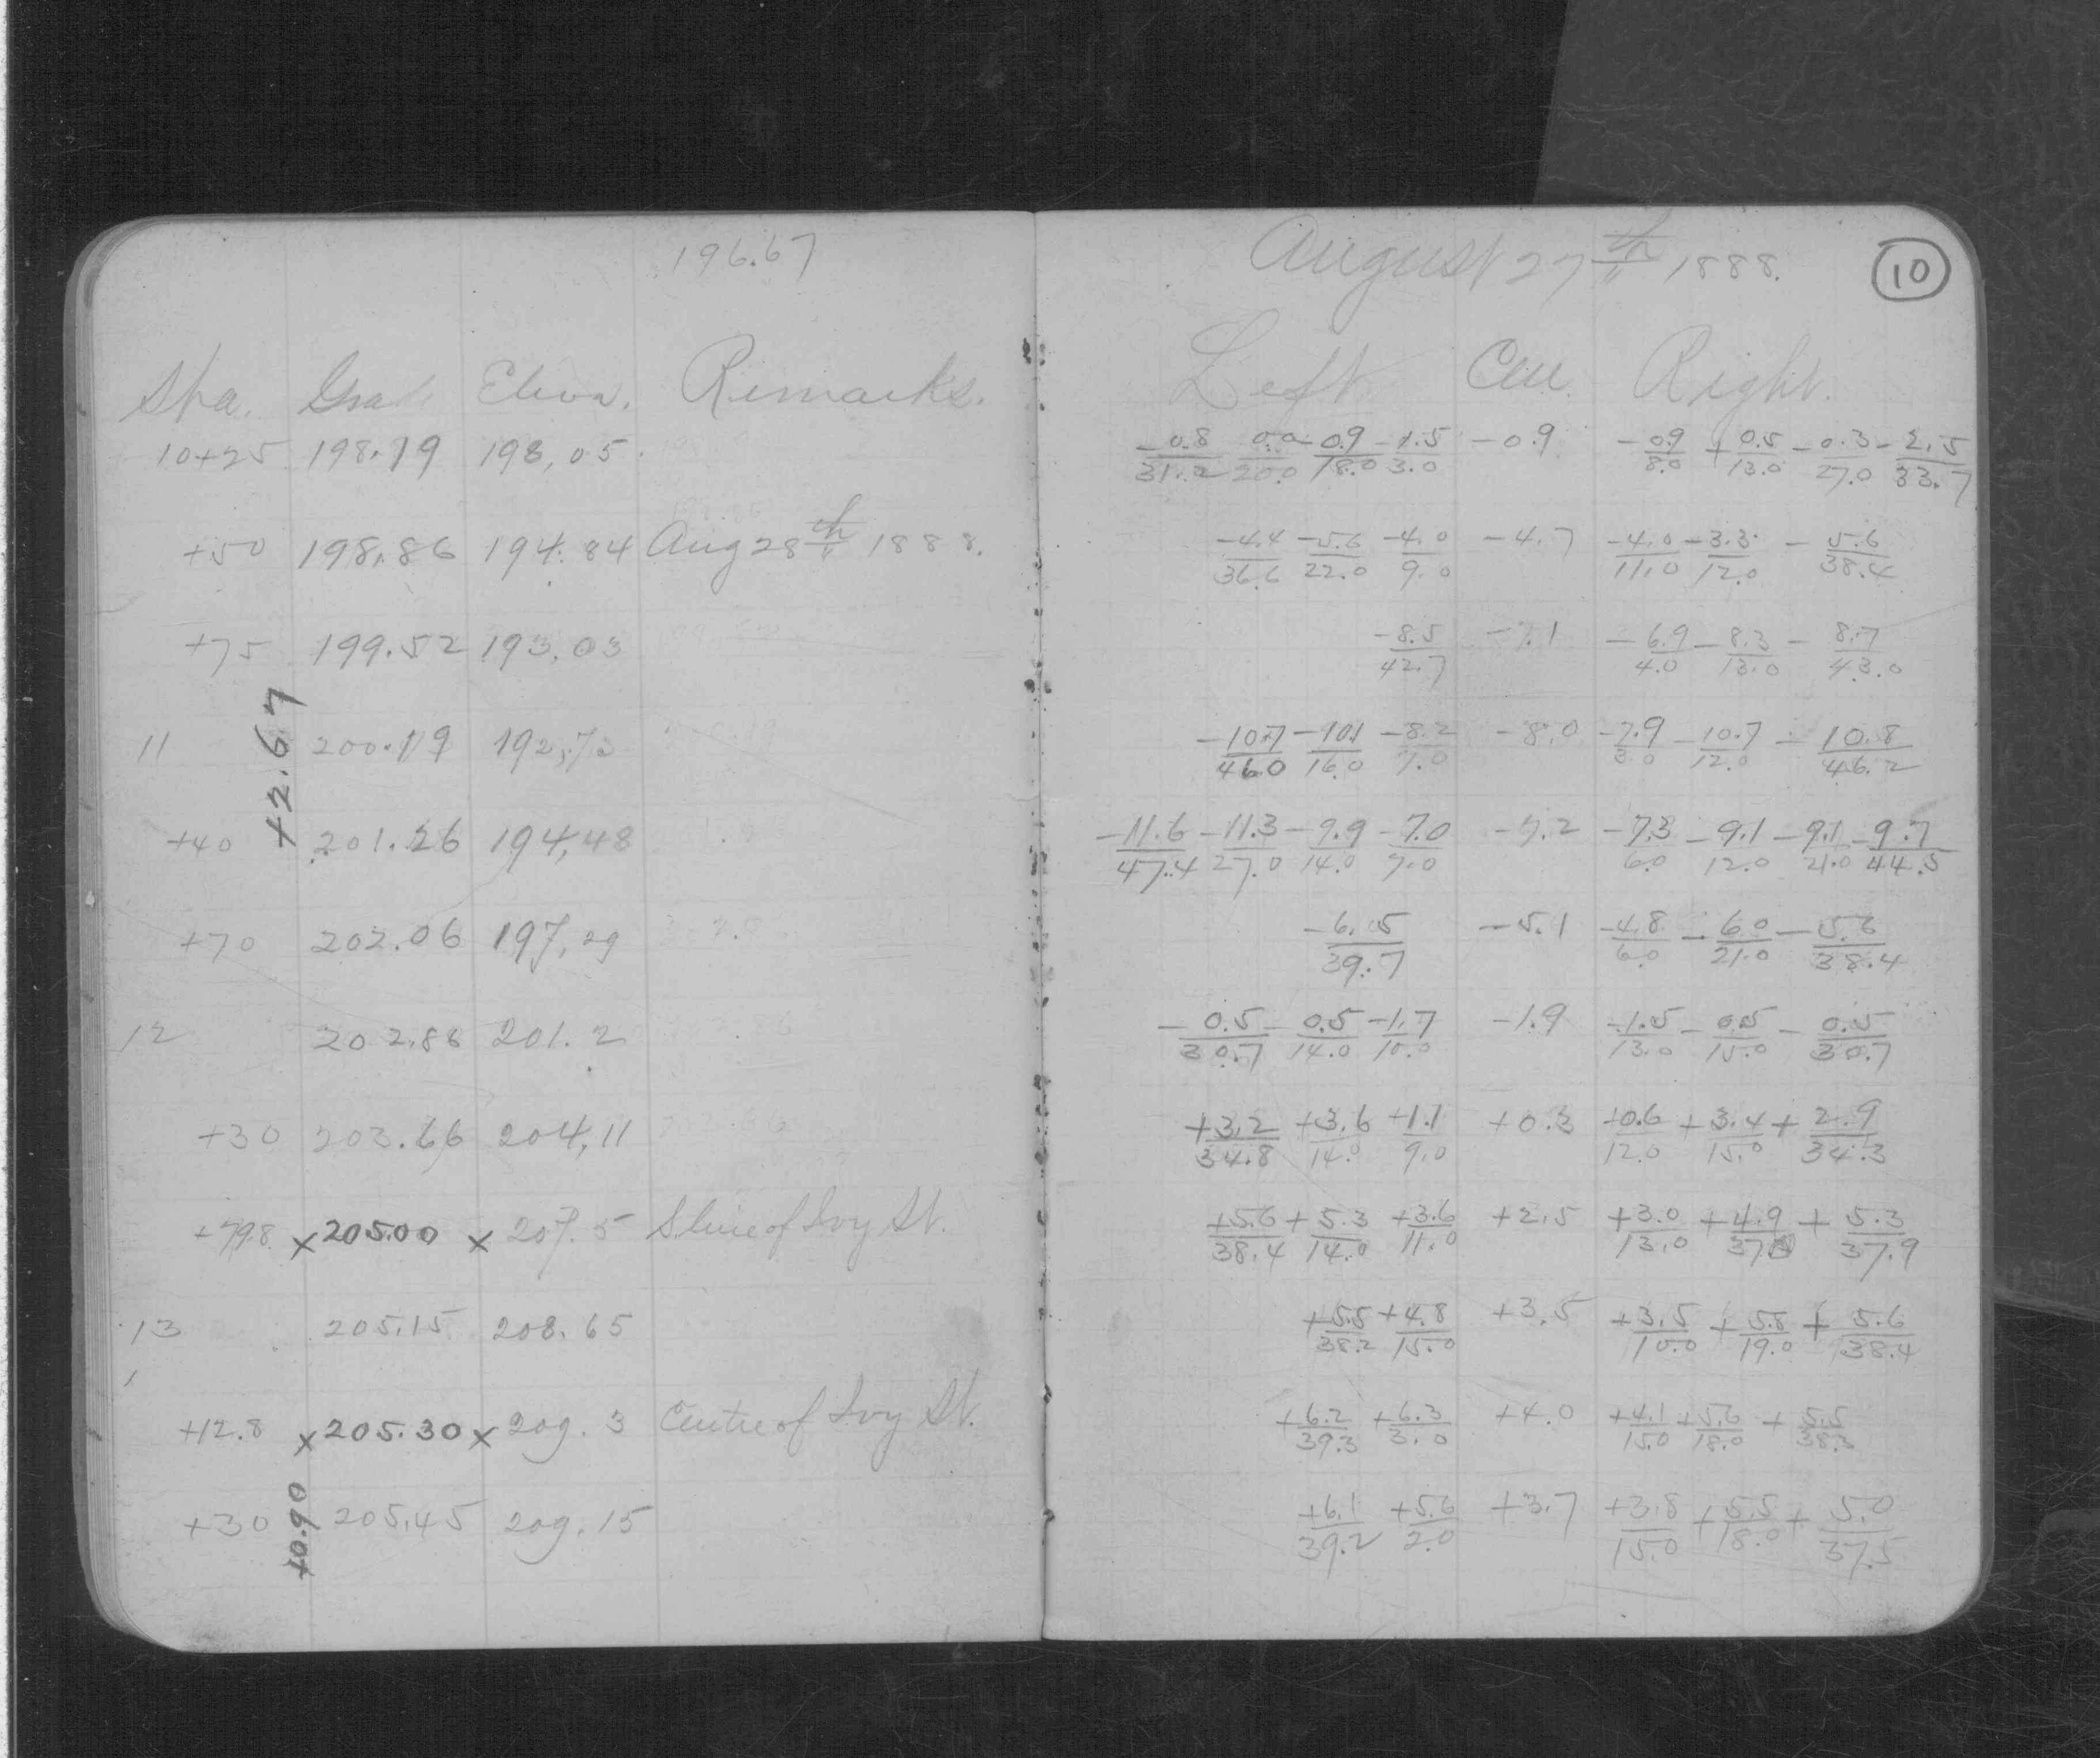 196.67
August 27th 1888. 10
Sta. Grade Eleva. Remarks. Left Cen. Right.
10+25 198.19 198.05 -0.8/31.2 0.0/20.0 -0.9/18.0 -1.5/3.0 -0.9 -0.9/8.0 +0.5/13.0 -0.3/27.0 -2.5/33.7
+50 198.86 194.84 Aug 28th 1888. -4.4/36.6 -5.6/22.0 -4.0/9.0 -4.7 -4.0/11.0 -3.3/12.0 -5.6/38.4
+75 199.52 193.03 -8.5/42.7 -7.1 -6.9/4.0 -8.3/13.0 -8.7/43.0
+2.67
11 200.19 192.72 -10.7/46.0 -10.1/16.0 -8.2/7.0 -8.0 -7.9/3.0 -10.7/12.0 -10.8/46.2
+40 201.26 194.48 -11.6/47.4 -11.3/27.0 -9.9/14.0 -7.0/7.0 -7.2 -7.3/6.0 -9.1/12.0 -9.1/21.0 -9.7/44.5
+70 202.06 197.29 -6.5/39.7 -5.1 -4.8/6.0 -6.0/21.0 -5.6/38.4
12 202.86 201.2 -0.5/30.7 -0.5/14.0 -1.7/10.0 -1.9 -1.5/13.0 -0.5/15.0 -0.5/30.7
+30 203.66 204.11 +3.2/34.8 +3.6/14.0 +1.1/9.0 +0.3 +0.6/12.0 +3.4/15.0 +2.9/34.3
+79.8 x 205.00 x 207.5 S line of Ivy St. +5.6/38.4 +5.3/14.0 +3.6/11.0 +2.5 +3.0/13.0 +4.9/37. +5.3/37.9
13 205.15 208.65 +5.5/38.2 +4.8/15.0 +3.5 +3.5/10.0 +5.8/19.0 +5.6/38.4
+12.8 x 205.30 x 209.3 Centre of Ivy St. +6.2/39.3 +6.3/3.0 +4.0 +4.1/15.0 +5.6/18.0 +5.5/38.3
+0.90
+30 205.45 209.15 +6.1/39.2 +5.6/2.0 +3.7 +3.8/15.0 +5.5/18.0 +5.0/37.5